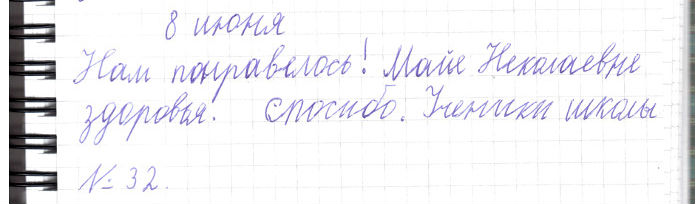 8 июня
Нам понравелось! Майе Неколаевне
здоровья! спосибо. Ученики школы
№ 32.